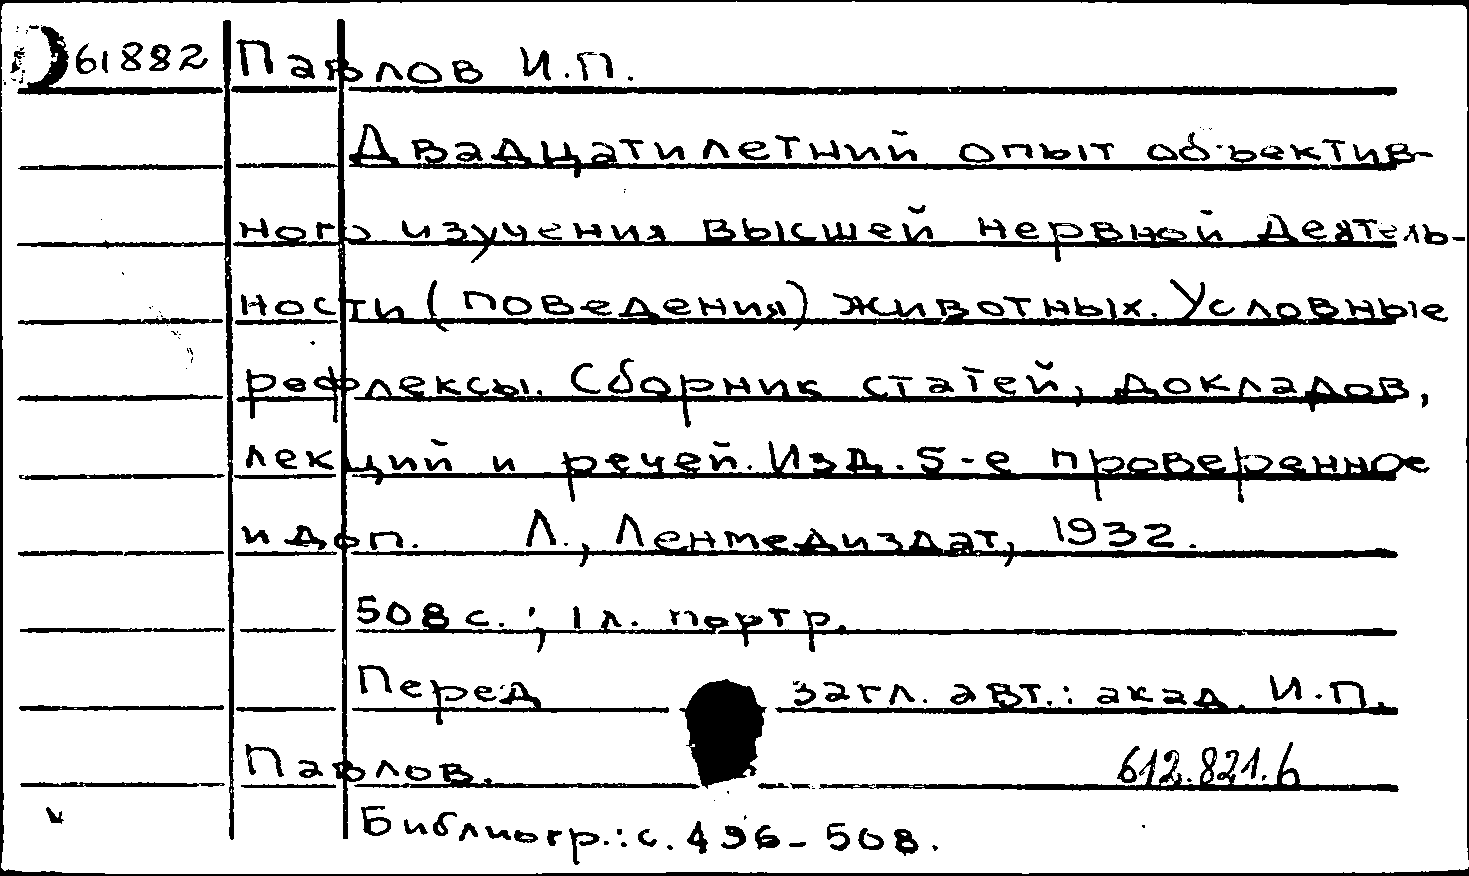 61882 Павлов И.П.
Двадцатилетний опыт объектив-
ного изучения высшей нервной деятель-
ности (поведения) животных. Условные
рефлексы. Сборник статей, докладов,
лекций и речей. Изд. 5-е проверенное
и доп. Л., Ленмедиздат, 1932.
508 с.; 1 л. портр.
Перед загл. авт.: акад. И.П.
Павлов. 612.821.6
Библиогр.: с. 496-508.